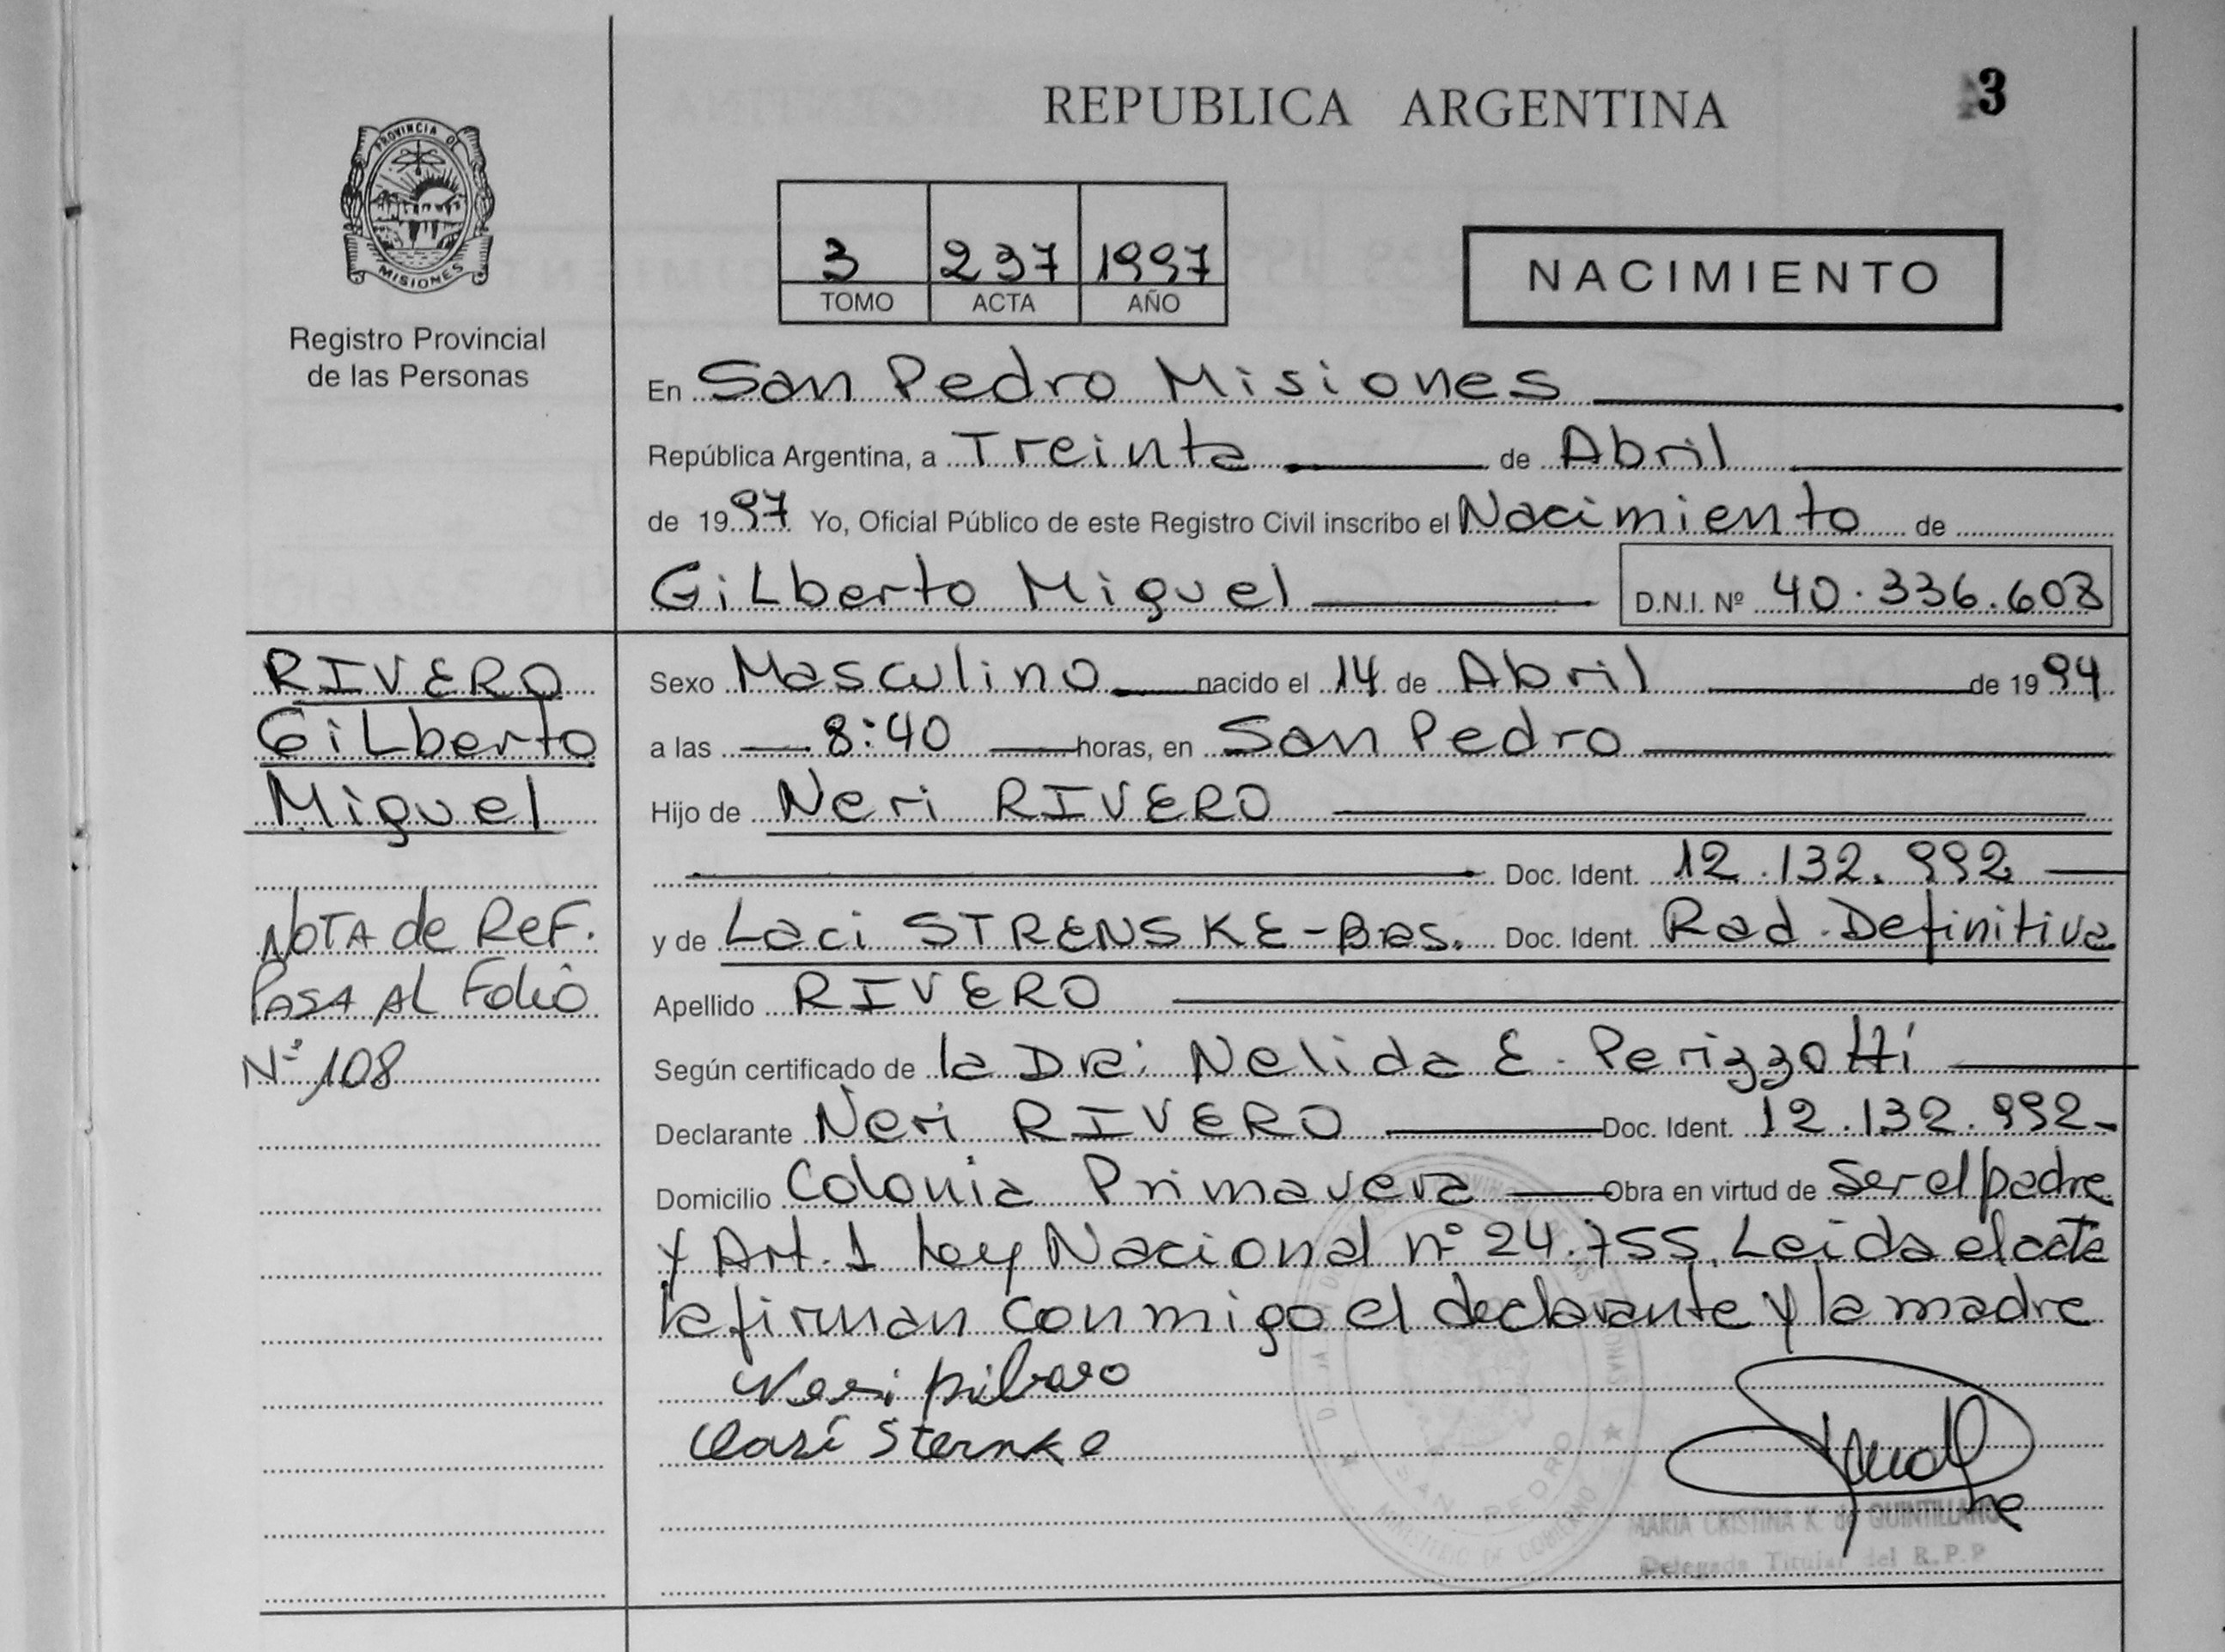 REPUBLICA ARGENTINA
3
PROVINCIA DE
MISIONES
Registro Provincial
de las Personas
3 237 1997
TOMO ACTA AÑO
NACIMIENTO
En San Pedro Misiones
República Argentina, a Treinta de Abril
de 1997 Yo, Oficial Público de este Registro Civil inscribo el Nacimiento de
Gilberto Miguel D.N.I. Nº 40.336.608
RIVERO
Gilberto
Miguel
NOTA de REF.
PASA AL Folio
Nº 108
Sexo Masculino nacido el 14 de Abril de 1994
a las 8:40 horas, en San Pedro
Hijo de Neri RIVERO
Doc. Ident. 12.132.992
y de Laci STRENSKE-Bras. Doc. Ident. Rad. Definitiva
Apellido RIVERO
Según certificado de la Dra: Nelida E. Perizzotti
Declarante Neri RIVERO Doc. Ident. 12.132.992-
Domicilio Colonia Primavera Obra en virtud de ser el padre
y Art. 1 Ley Nacional nº 24.755. Leida el acta
la firman conmigo el declarante y la madre
Neri
Sternke
SAN PEDRO
MINISTERIO DE GOBIERNO
MARIA CRISTINA K. de QUINTILLANO
Delegada Titular del R.P.P